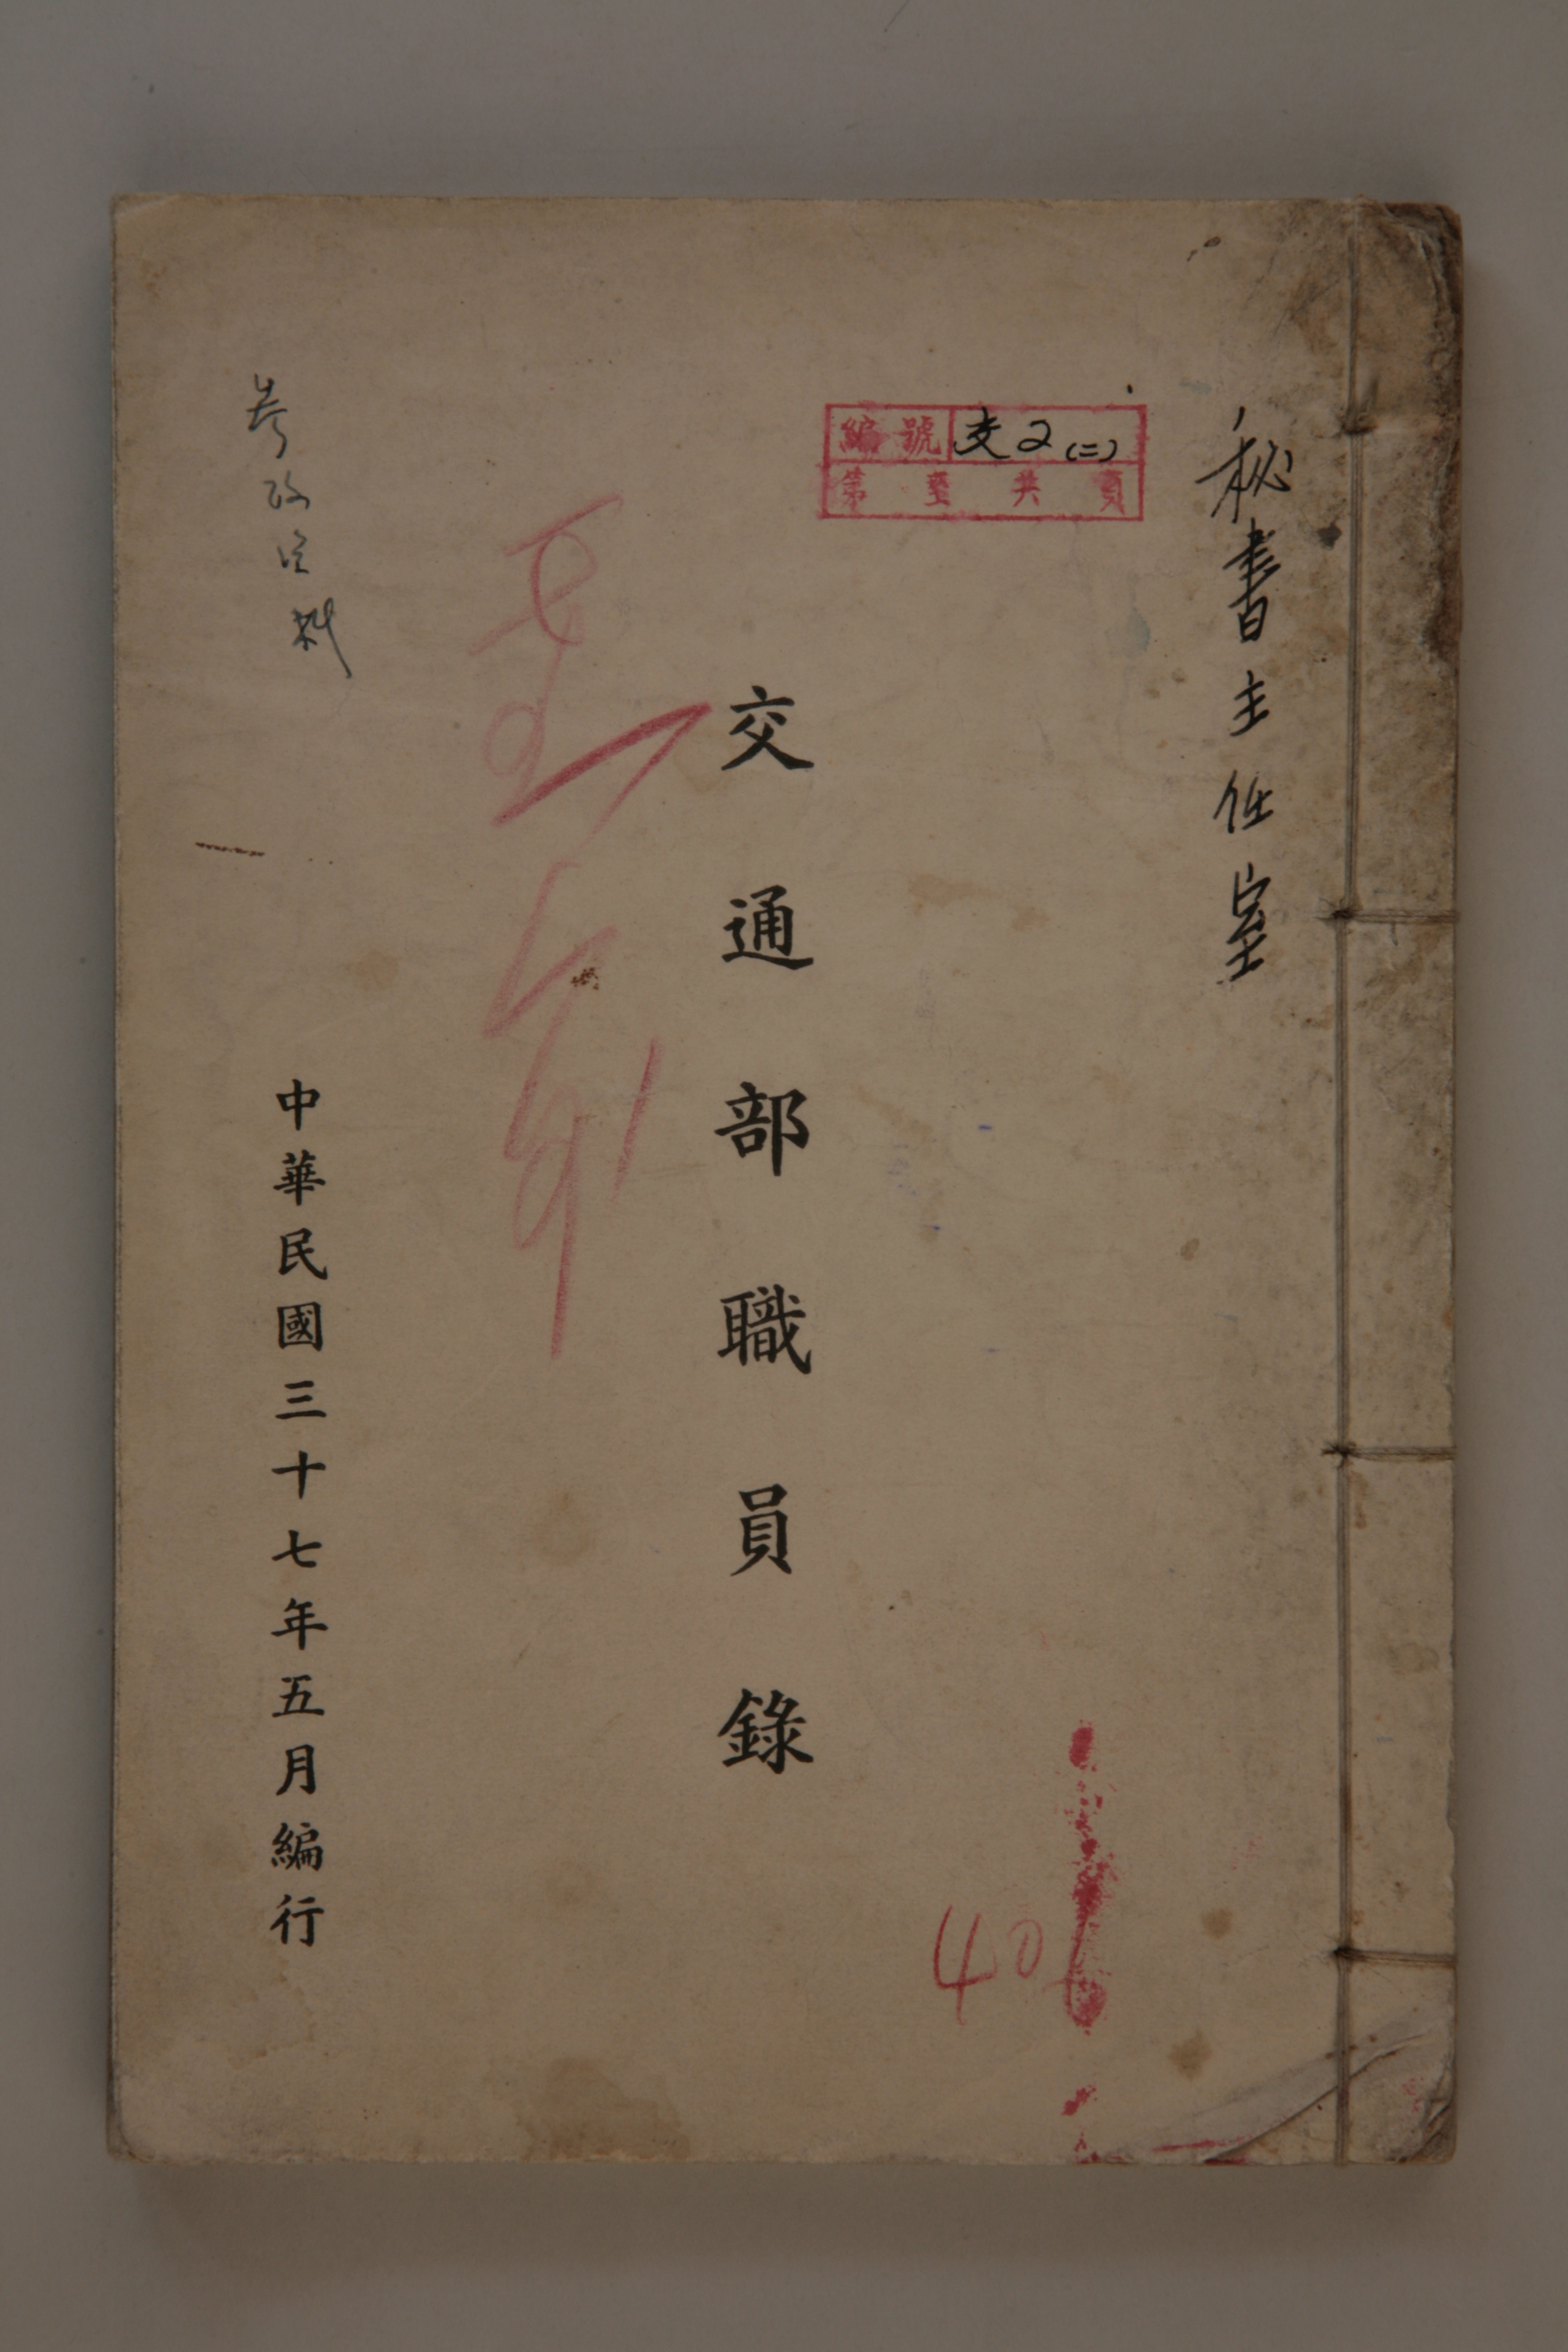 秘書主任室
編號 交2(二)
第 共 頁
交通部職員錄
40
中華民國三十七年五月編行
参攷資料